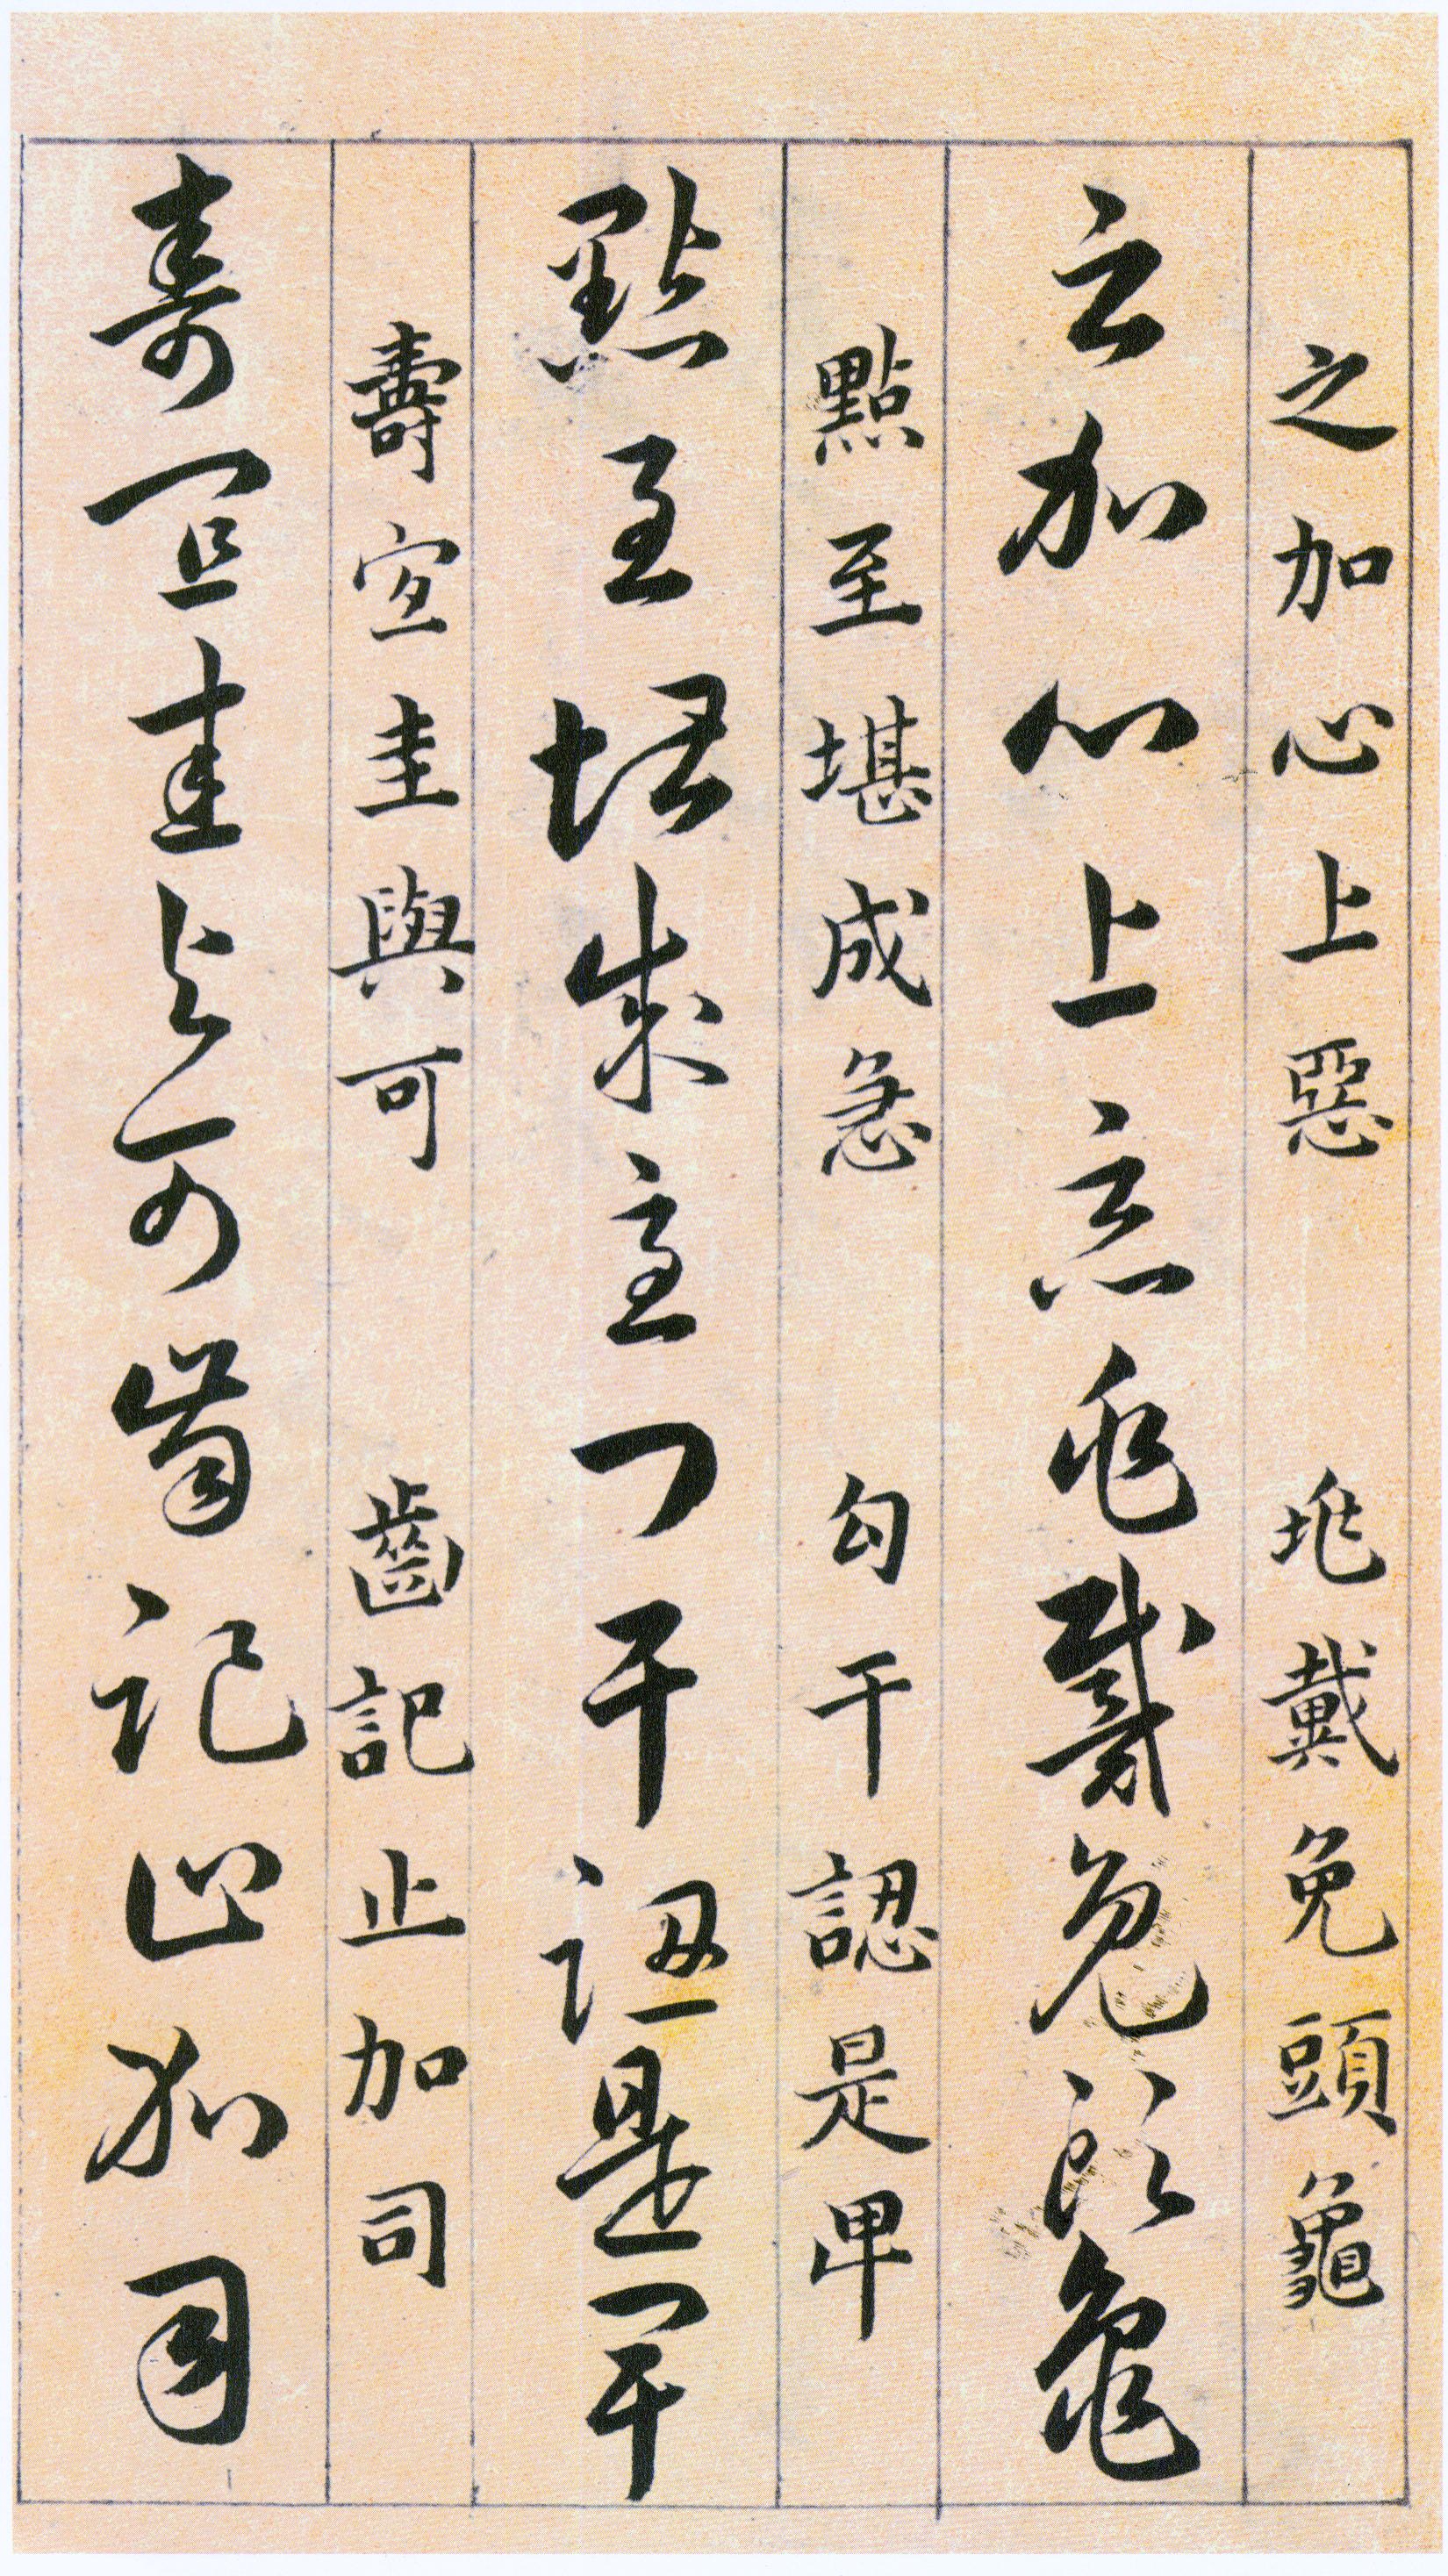 之加心上惡 兆戴免頭龜
之加心上惡兆戴免頭龜
點至堪成急 勾干認是卑
點至堪成急勾干認是卑
壽宜圭與可 齒記止加司
壽宜圭與可齒記止加司